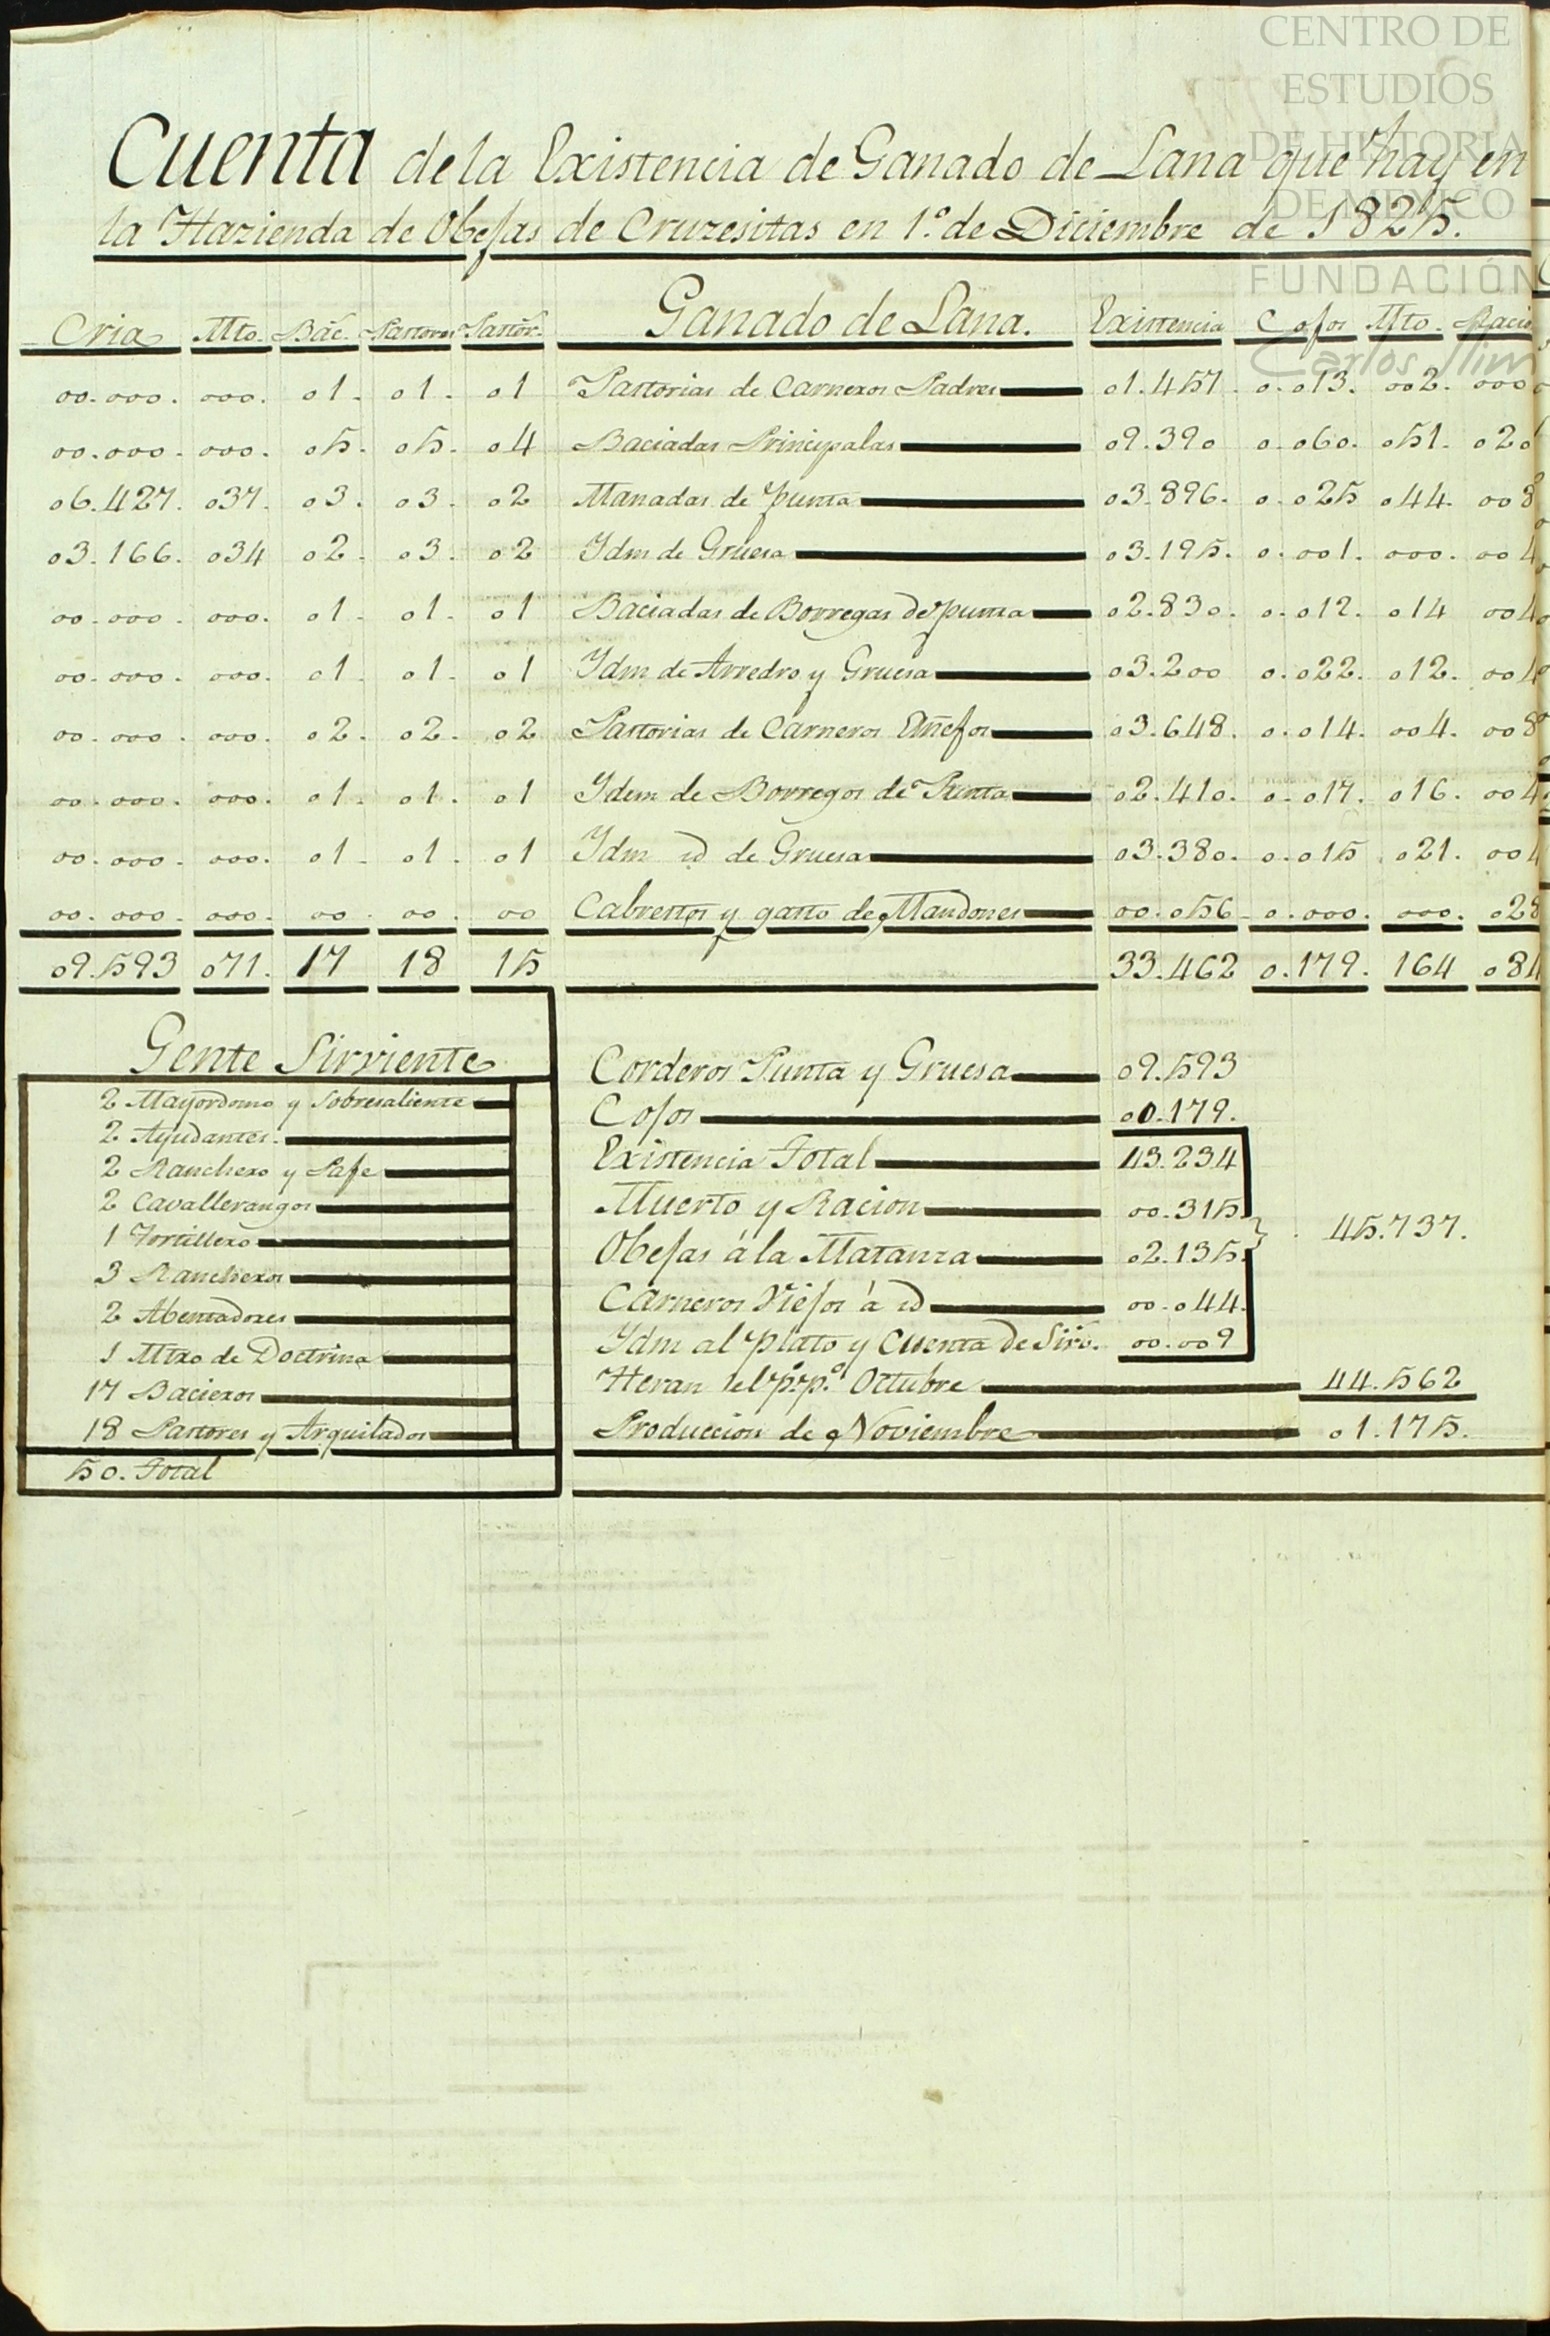 CENTRO DE
ESTUDIOS
DE HISTORIA
DE MÉXICO
FUNDACIÓN
Carlos Slim
Cuenta de la Existencia de Ganado de Lana que hay en
la Hazienda de Obejas de Cruzesitas en 1.º de Diciembre de 1825.
Cria Mto. Bac. Pastores Pastor. Ganado de Lana. Existencia Cojos Mto. Racio
00.000. 000. 01. 01. 01 Pastorias de Carneros Padres 01.457. 0.013. 002. 000
00.000. 000. 05. 05. 04 Baciadas Principalas 09.390 0.060. 051. 020
06.427. 037. 03. 03. 02 Manadas de punta 03.896. 0.025 044. 008
03.166. 034 02. 03. 02 Ydm de Gruesa 03.195. 0.001. 000. 004
00.000. 000. 01. 01. 01 Baciadas de Borregas de punta 02.830. 0.012. 014 004
00.000. 000. 01. 01. 01 Ydm de Arredro y Gruesa 03.200 0.022. 012. 004
00.000. 000. 02. 02. 02 Pastorias de Carneros Añejos 03.648. 0.014. 004. 008
00.000. 000. 01. 01. 01 Ydem de Borregos de Punta 02.410. 0.017. 016. 004
00.000. 000. 01. 01. 01 Ydm id de Gruesa 03.380. 0.015. 021. 004
00.000. 000. 00. 00. 00 Cabrestos y gasto de Mandones 00.056 0.000. 000. 028
09.593 071. 17 18 15 33.462 0.179. 164 084
Gente Sirviente
2 Mayordomo y Sobresaliente
2 Ayudantes.
2 Ranchero y Paje
2 Cavallerangos
1 Tortillero
3 Rancheros
2 Abentadores
1 Mtro de Doctrina
17 Bacieros
18 Pastores y Arquilados
50. Total
Corderos Punta y Gruesa 09.593
Cojos 00.179.
Existencia Total 43.234
Muerto y Racion 00.315
Obejas á la Matanza 02.135.
45.737.
Carneros Viejos á id 00.044.
Ydm al plato y Cuenta de Sirv. 00.009
Heran el pp.º Octubre 44.562
Produccion de Noviembre 01.175.